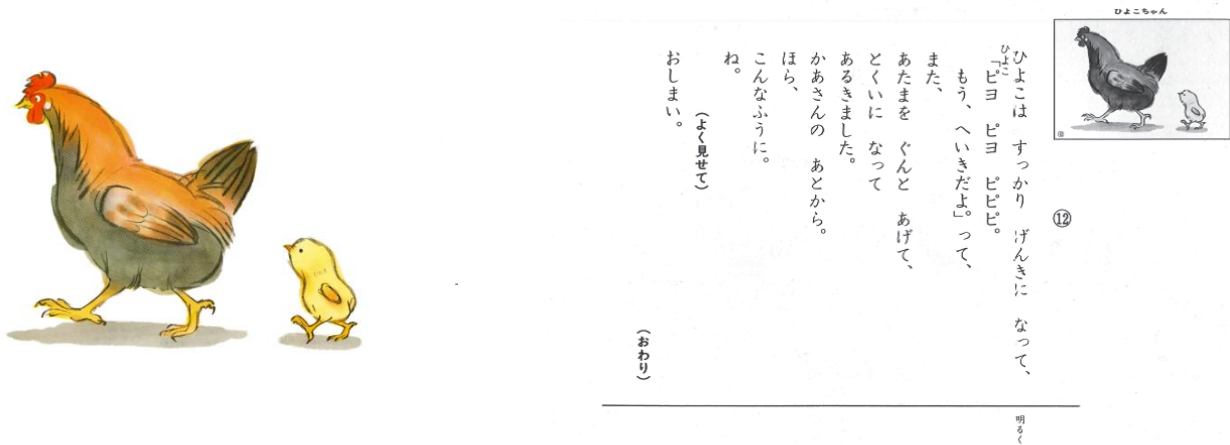 ひよこちゃん
⑫
ひよこは　すっかり　げんきに　なって、
ひよこ
「ピヨ　ピヨ　ピピピ。
もう、へいきだよ」。って、
また、
あたまを　ぐんと　あげて、
とくいに　なって
あるきました。
かあさんの　あとから。
ほら、
こんなふうに。
ね。
（よく見せて）
おしまい。
（おわり）
明るく